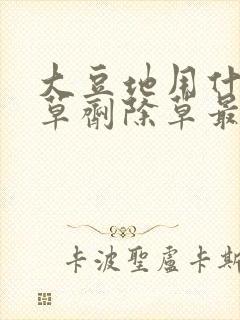 大豆地用什
草劑除草最
卡波聖盧卡斯